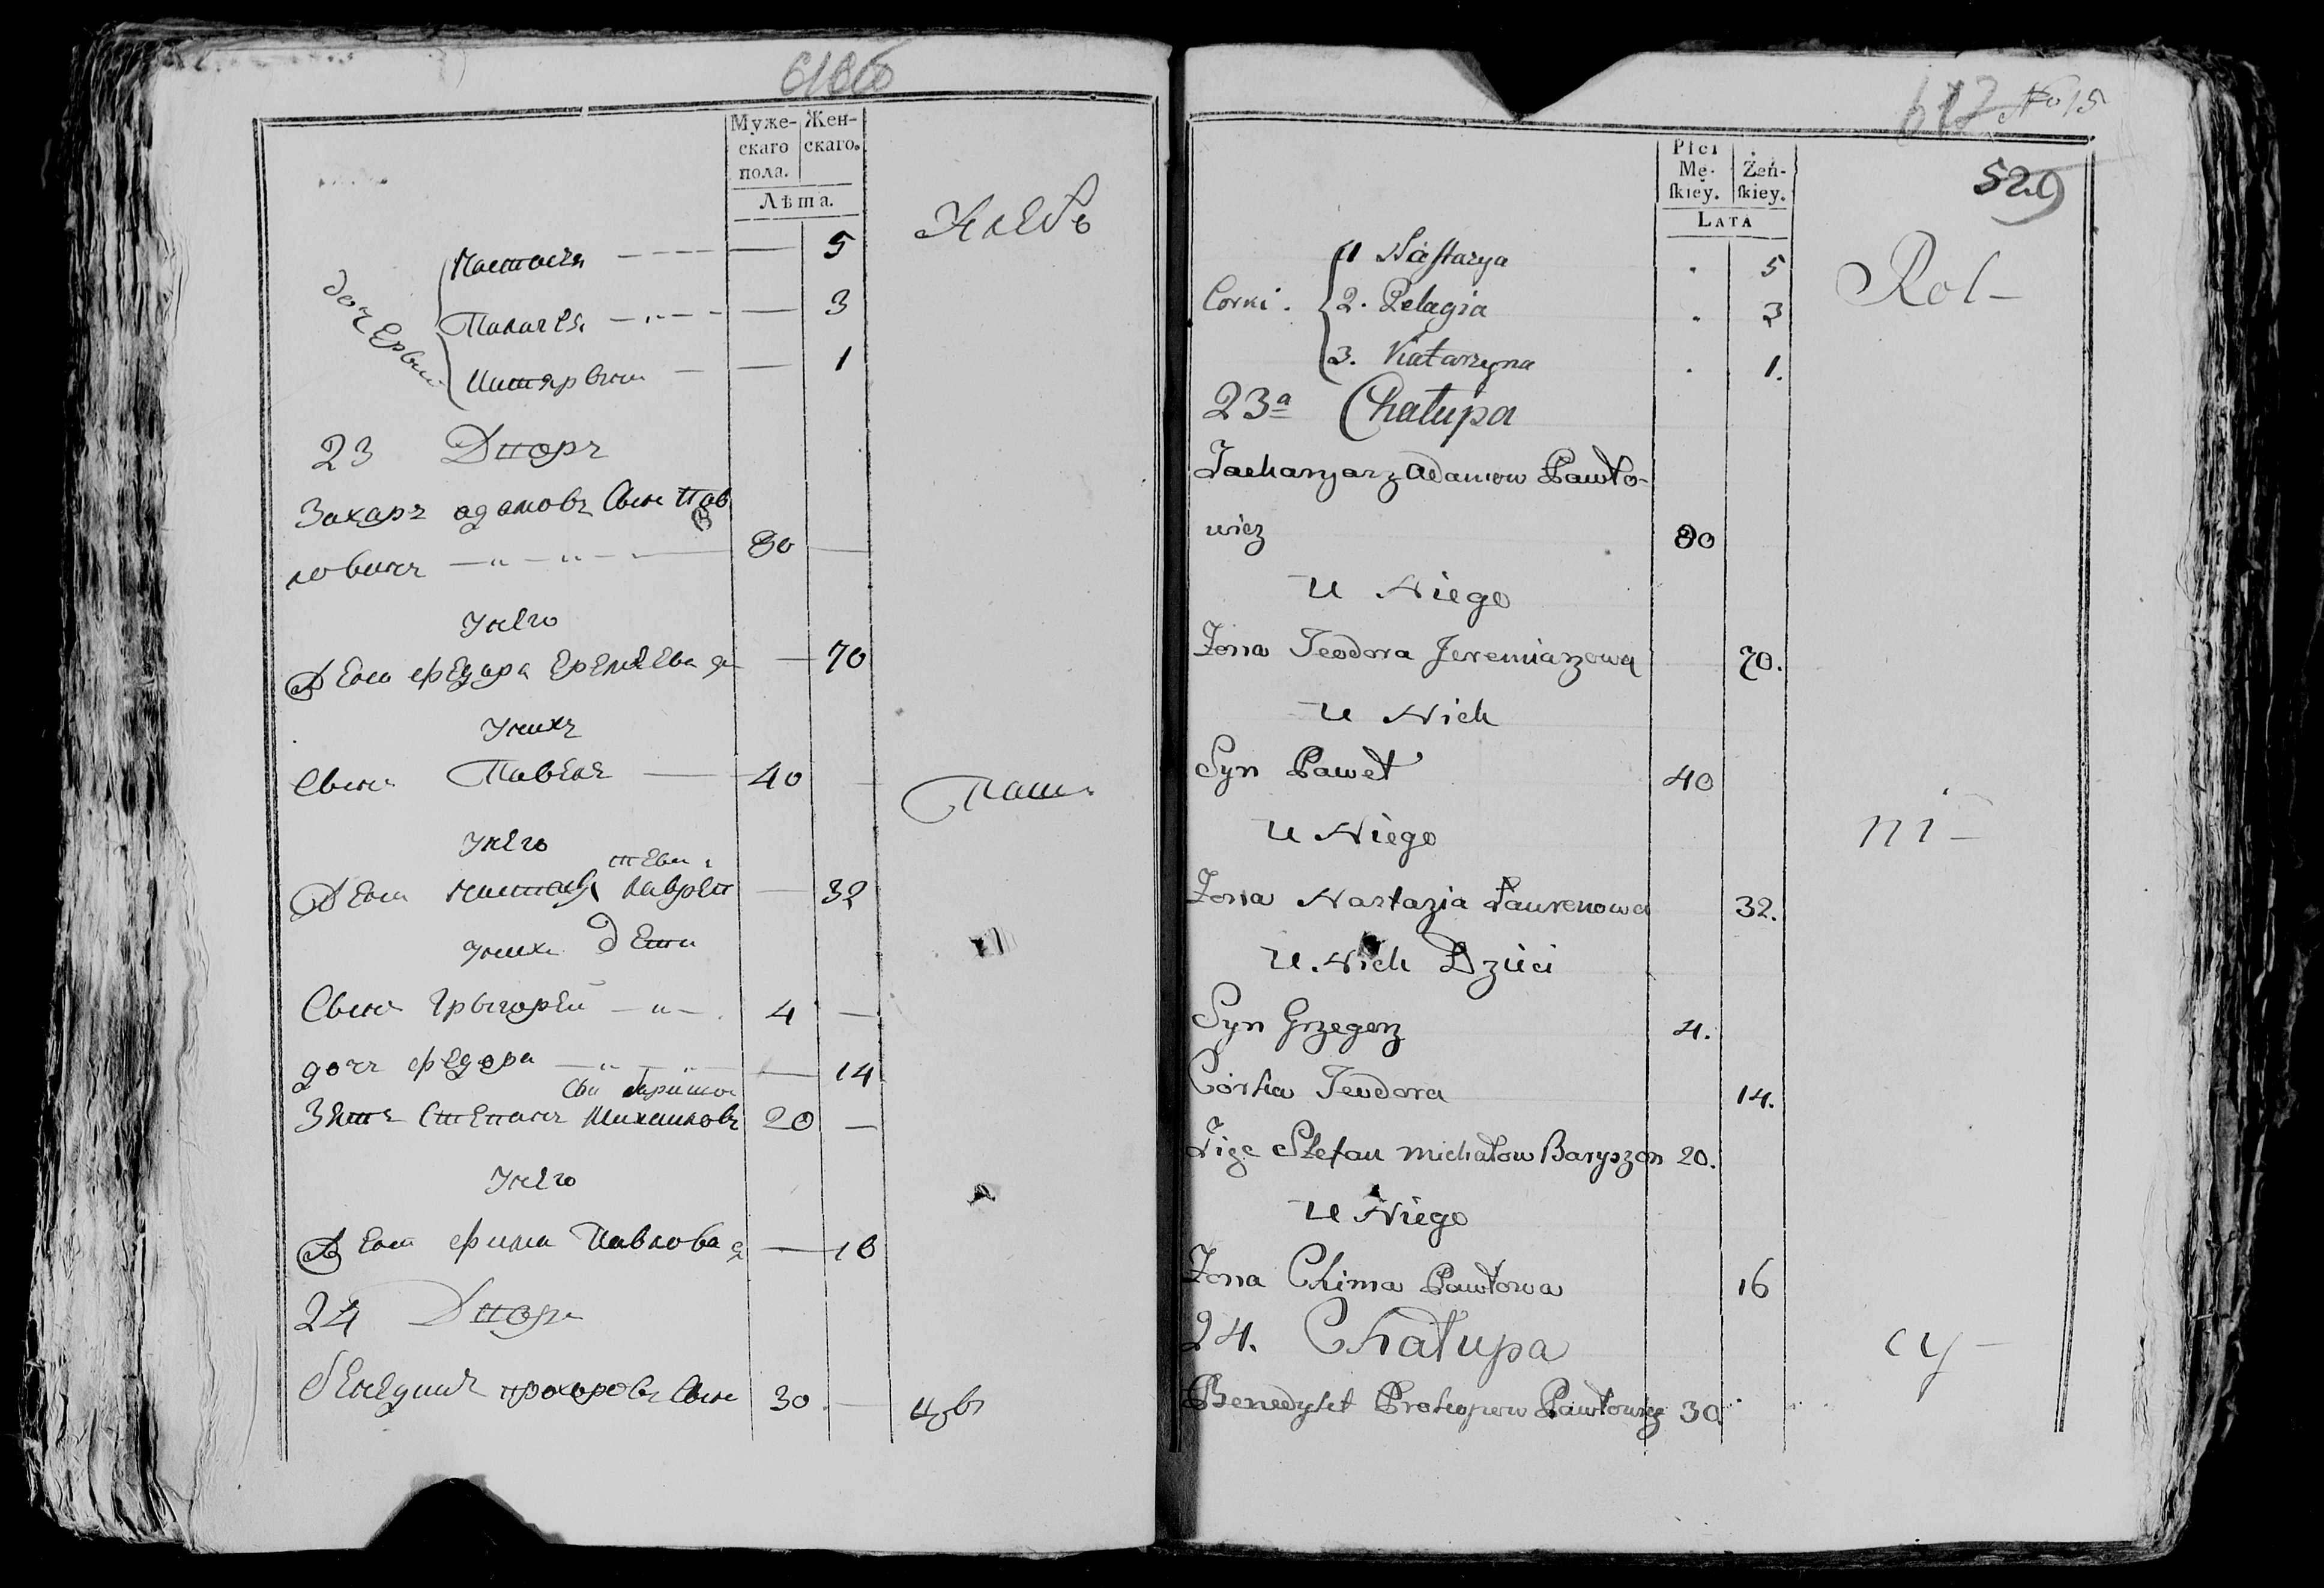 Муже-
скаго
пола.
Жен-
скаго.
Лѣта.
Хлебъ
Настася 5
Палагея 3
1
дочерьи
23 Дворъ
Захаръ адамовъ Сынъ Пав
ловичъ 80
У него
Жена федора Еремеева я 70
У нихъ
Сынъ Павелъ 40
Паш
У него
теева
Жена настася лаврен 32
У нихъ дети
Сынъ Грыгорей 4
дочь федора 14
Зять Степанъ Михаиловъ 20
У него
Жена фима Павлова я 16
24 Дворъ
бенедиктъ прохоровъ Сынъ 30
цовъ
617 No 15
529
Płci
Mę-
skiey.
Żeń-
skiey.
LATA
Rol-
Corki.
1 Nastazya 5
2. Pelagia 3
3. Katarzyna 1.
23a Chałupa
Zacharyarz Adamow Pawło-
wicz 80
U Niego
Zona Teodora Jeremiaszowa 70.
U Nich
Syn Paweł 40
U Niego
ni-
Zona Nastazia Laurenowa 32.
U. Nich Dzieci
Syn Grzegorz 4.
Córka Teodora 14.
Zięc Stefan Michałow Baryszon 20.
U Niego
Zona Chima Pawłowa 16
24. Chałupa
cy-
Benedykt Prokopow Pawłowicz 30